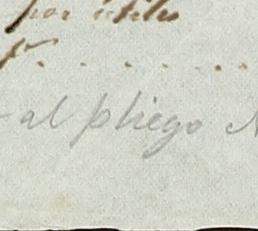 por utiles
al pliego